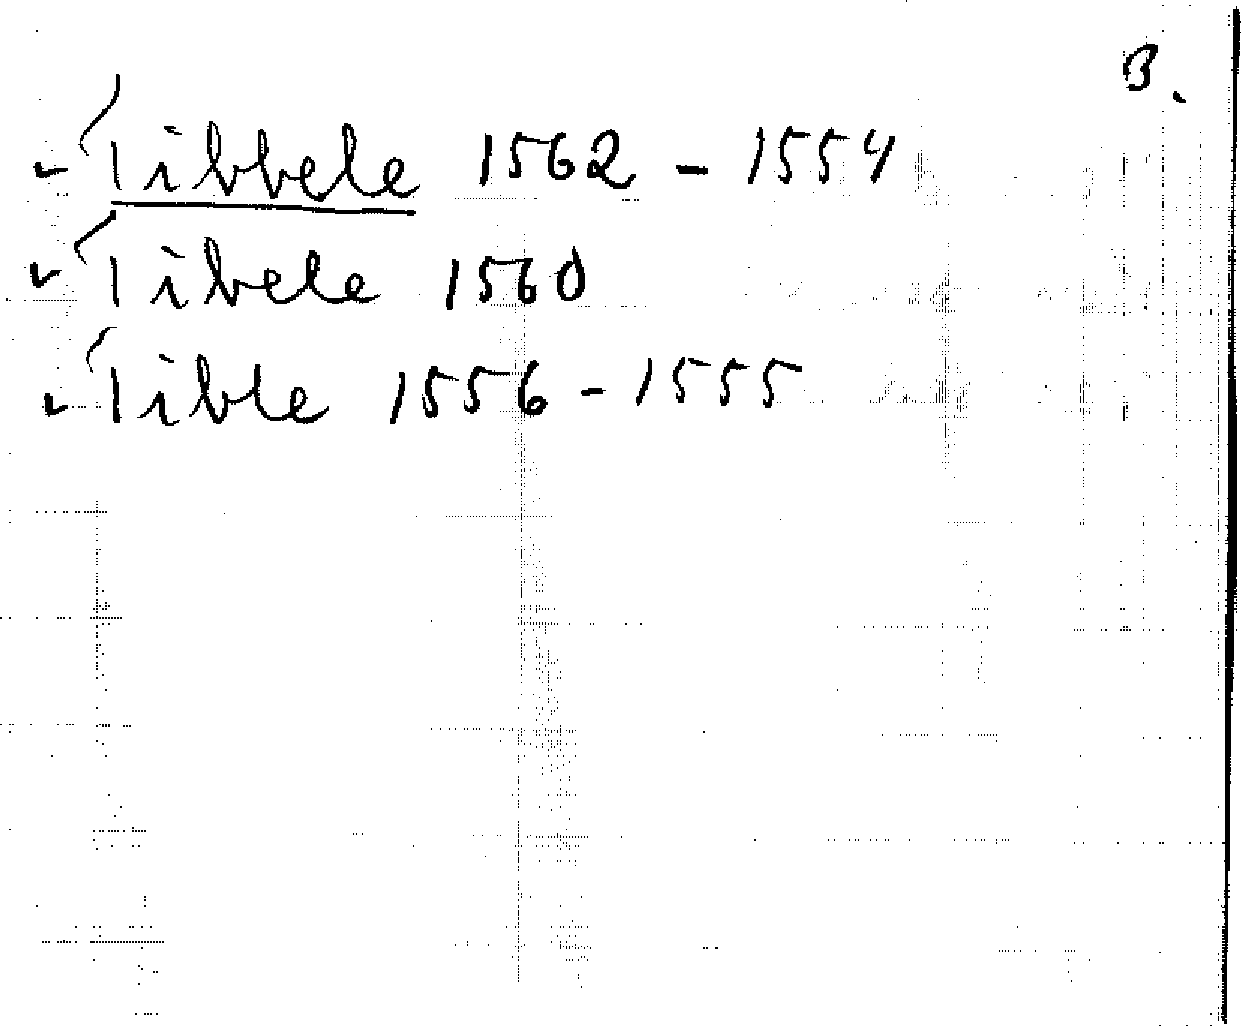 B.
✓ Tibbele 1562 - 1554
✓ Tibele 1560
✓ Tible 1556 - 1555